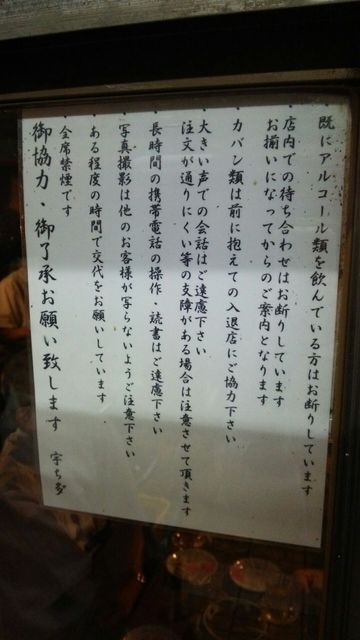 ・既にアルコール類を飲んでいる方はお断りしています
・店内での待ち合わせはお断りしています
お揃いになってからのご案内となります
・カバン類は前に抱えての入退店にご協力下さい
・大きい声での会話はご遠慮下さい
注文が通りにくい等の支障がある場合は注意させて頂きます
・長時間の携帯電話の操作・読書はご遠慮下さい
・写真撮影は他のお客様が写らないようご注意下さい
・ある程度の時間で交代をお願いしています
・全席禁煙です
御協力・御了承お願い致します 宇ち多